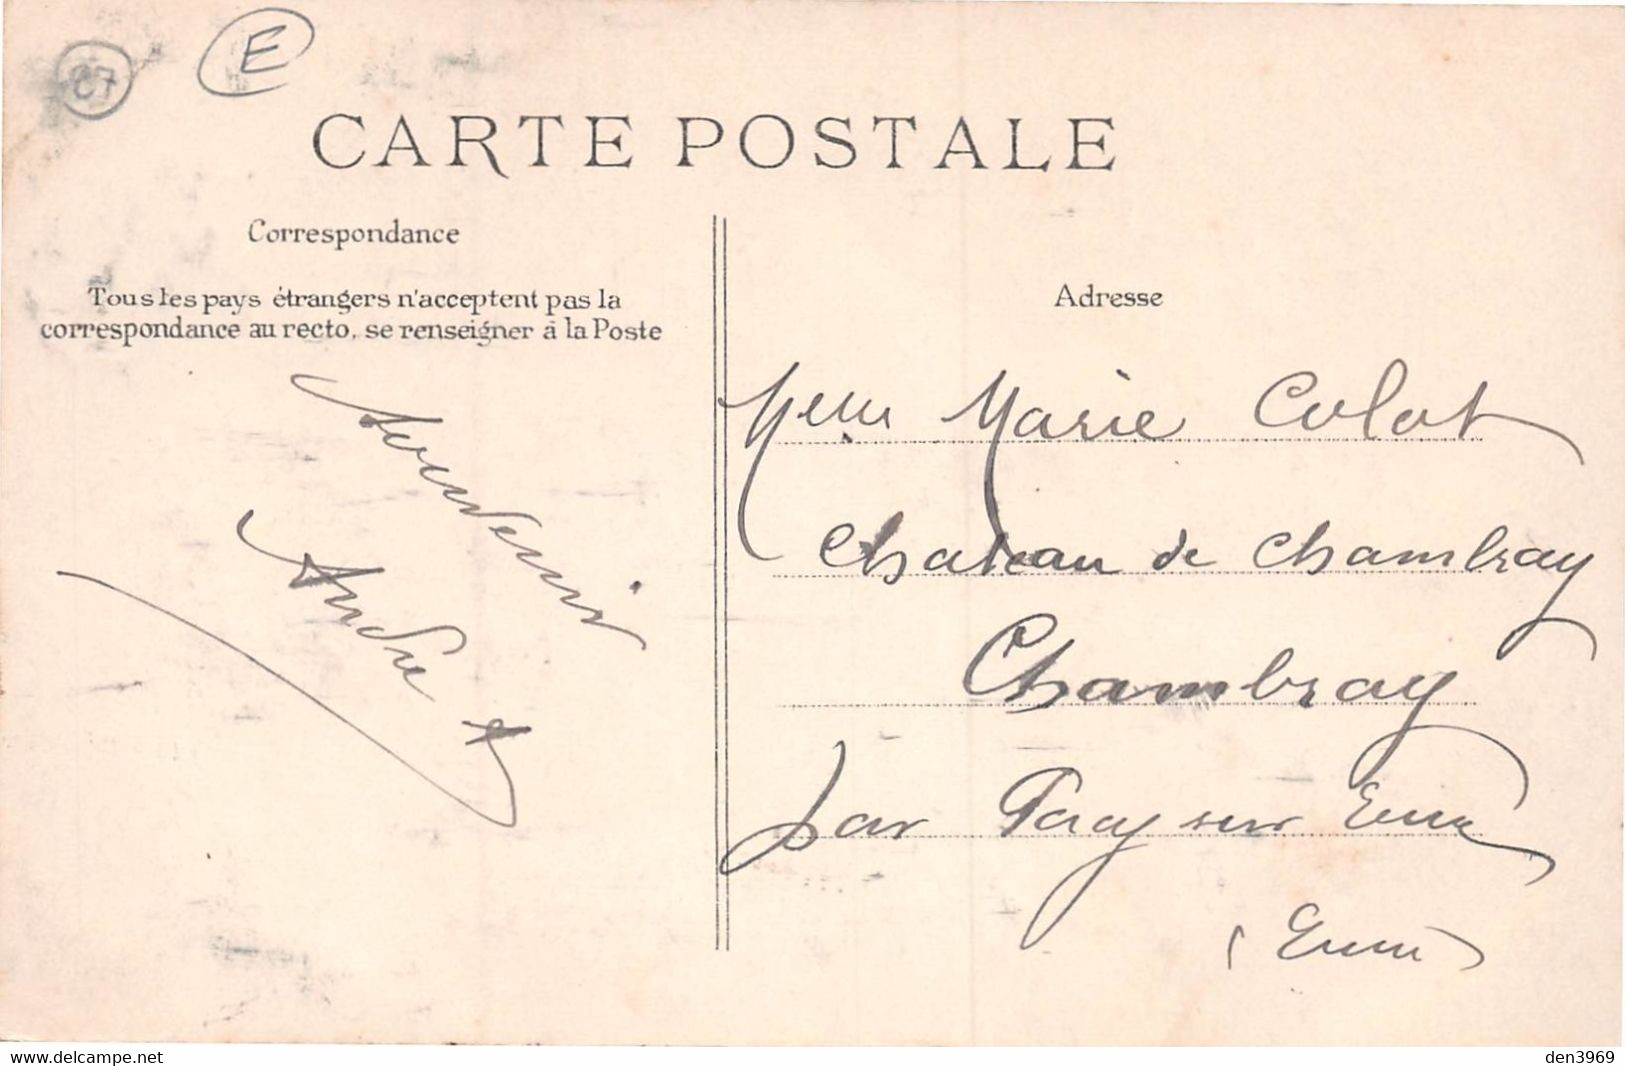 87
E
CARTE POSTALE
Correspondance
Tous les pays étrangers n'acceptent pas la
correspondance au recto, se renseigner à la Poste
Souvenir
André
Adresse
Melle Marie Colot
Chateau de Chambray
Chambray
par Pacy sur Eure
(Eure)
www.delcampe.net
den3969